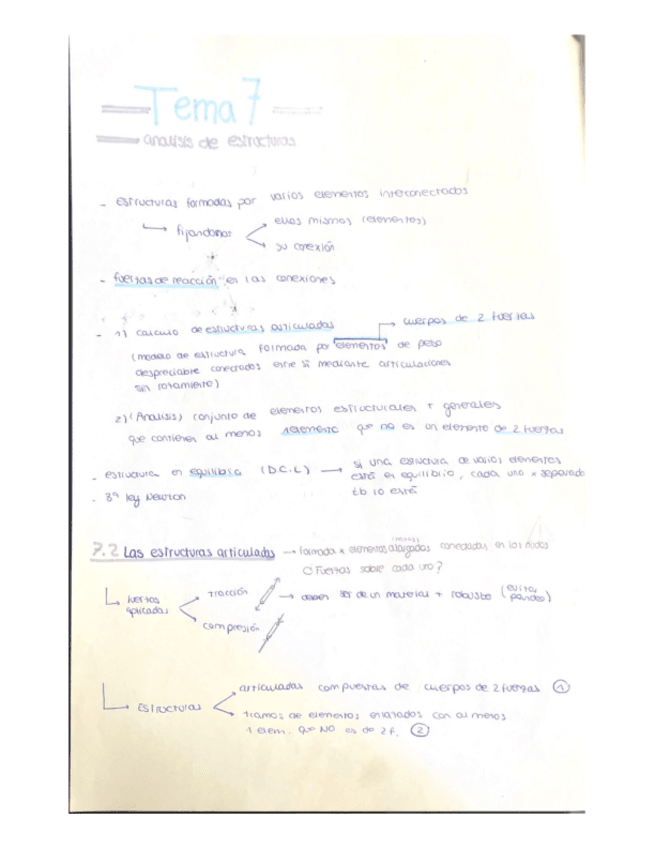 Tema 7
analisis de estructuras
- estructuras formadas por varios elementos interconectados
fijandonos
ellos mismos (elementos)
su conexión
- fuerzas de reacción en las conexiones
- 1) calculo de estructuras articuladas → cuerpos de 2 fuerzas
(modelo de estructura formada por elementos de peso
despreciable conectados entre si mediante articulaciones
sin rozamiento)
2) (Analisis) conjunto de elementos estructurales + generales
que contienen al menos 1 elemento que no es un elemento de 2 fuerzas
- estructura en equilibrio (D.C.L) → si una estructura de varios elementos
está en equilibrio, cada uno x separado
tb lo está
- 3ª ley Newton
7.2 Las estructuras articuladas → formada x elementos alargados (barras) conectadas en los nudos
¿Fuerzas sobre cada uno?
fuerzas
aplicadas
tracción
compresión
→ deben ser de un material + robusto (evitar
pandeo)
estructuras
articuladas compuestas de cuerpos de 2 fuerzas ①
tramos de elementos con al menos
1 elem. que NO es de 2 f. ②